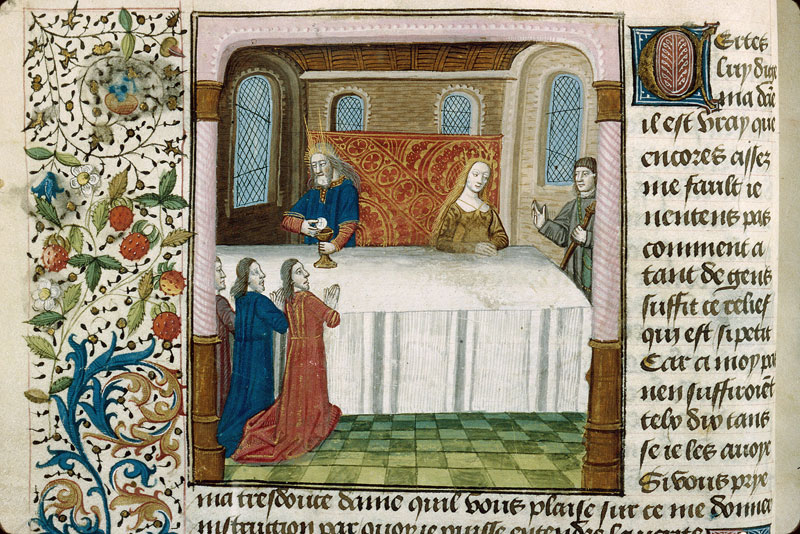 Certes
luy dige
ma dae
il est vray que
encores assez
me fault ie
nentens pas
comment a
tant de gens
suffit ce relief
qui est si petit
Car a moy pa
nen suffiroiet
telz dix tans
se ie les avoye
Si vous prye
ma tresdouce dame quil vous plaise sur ce me donner
instruction par quoy ie puisse entendre la verite